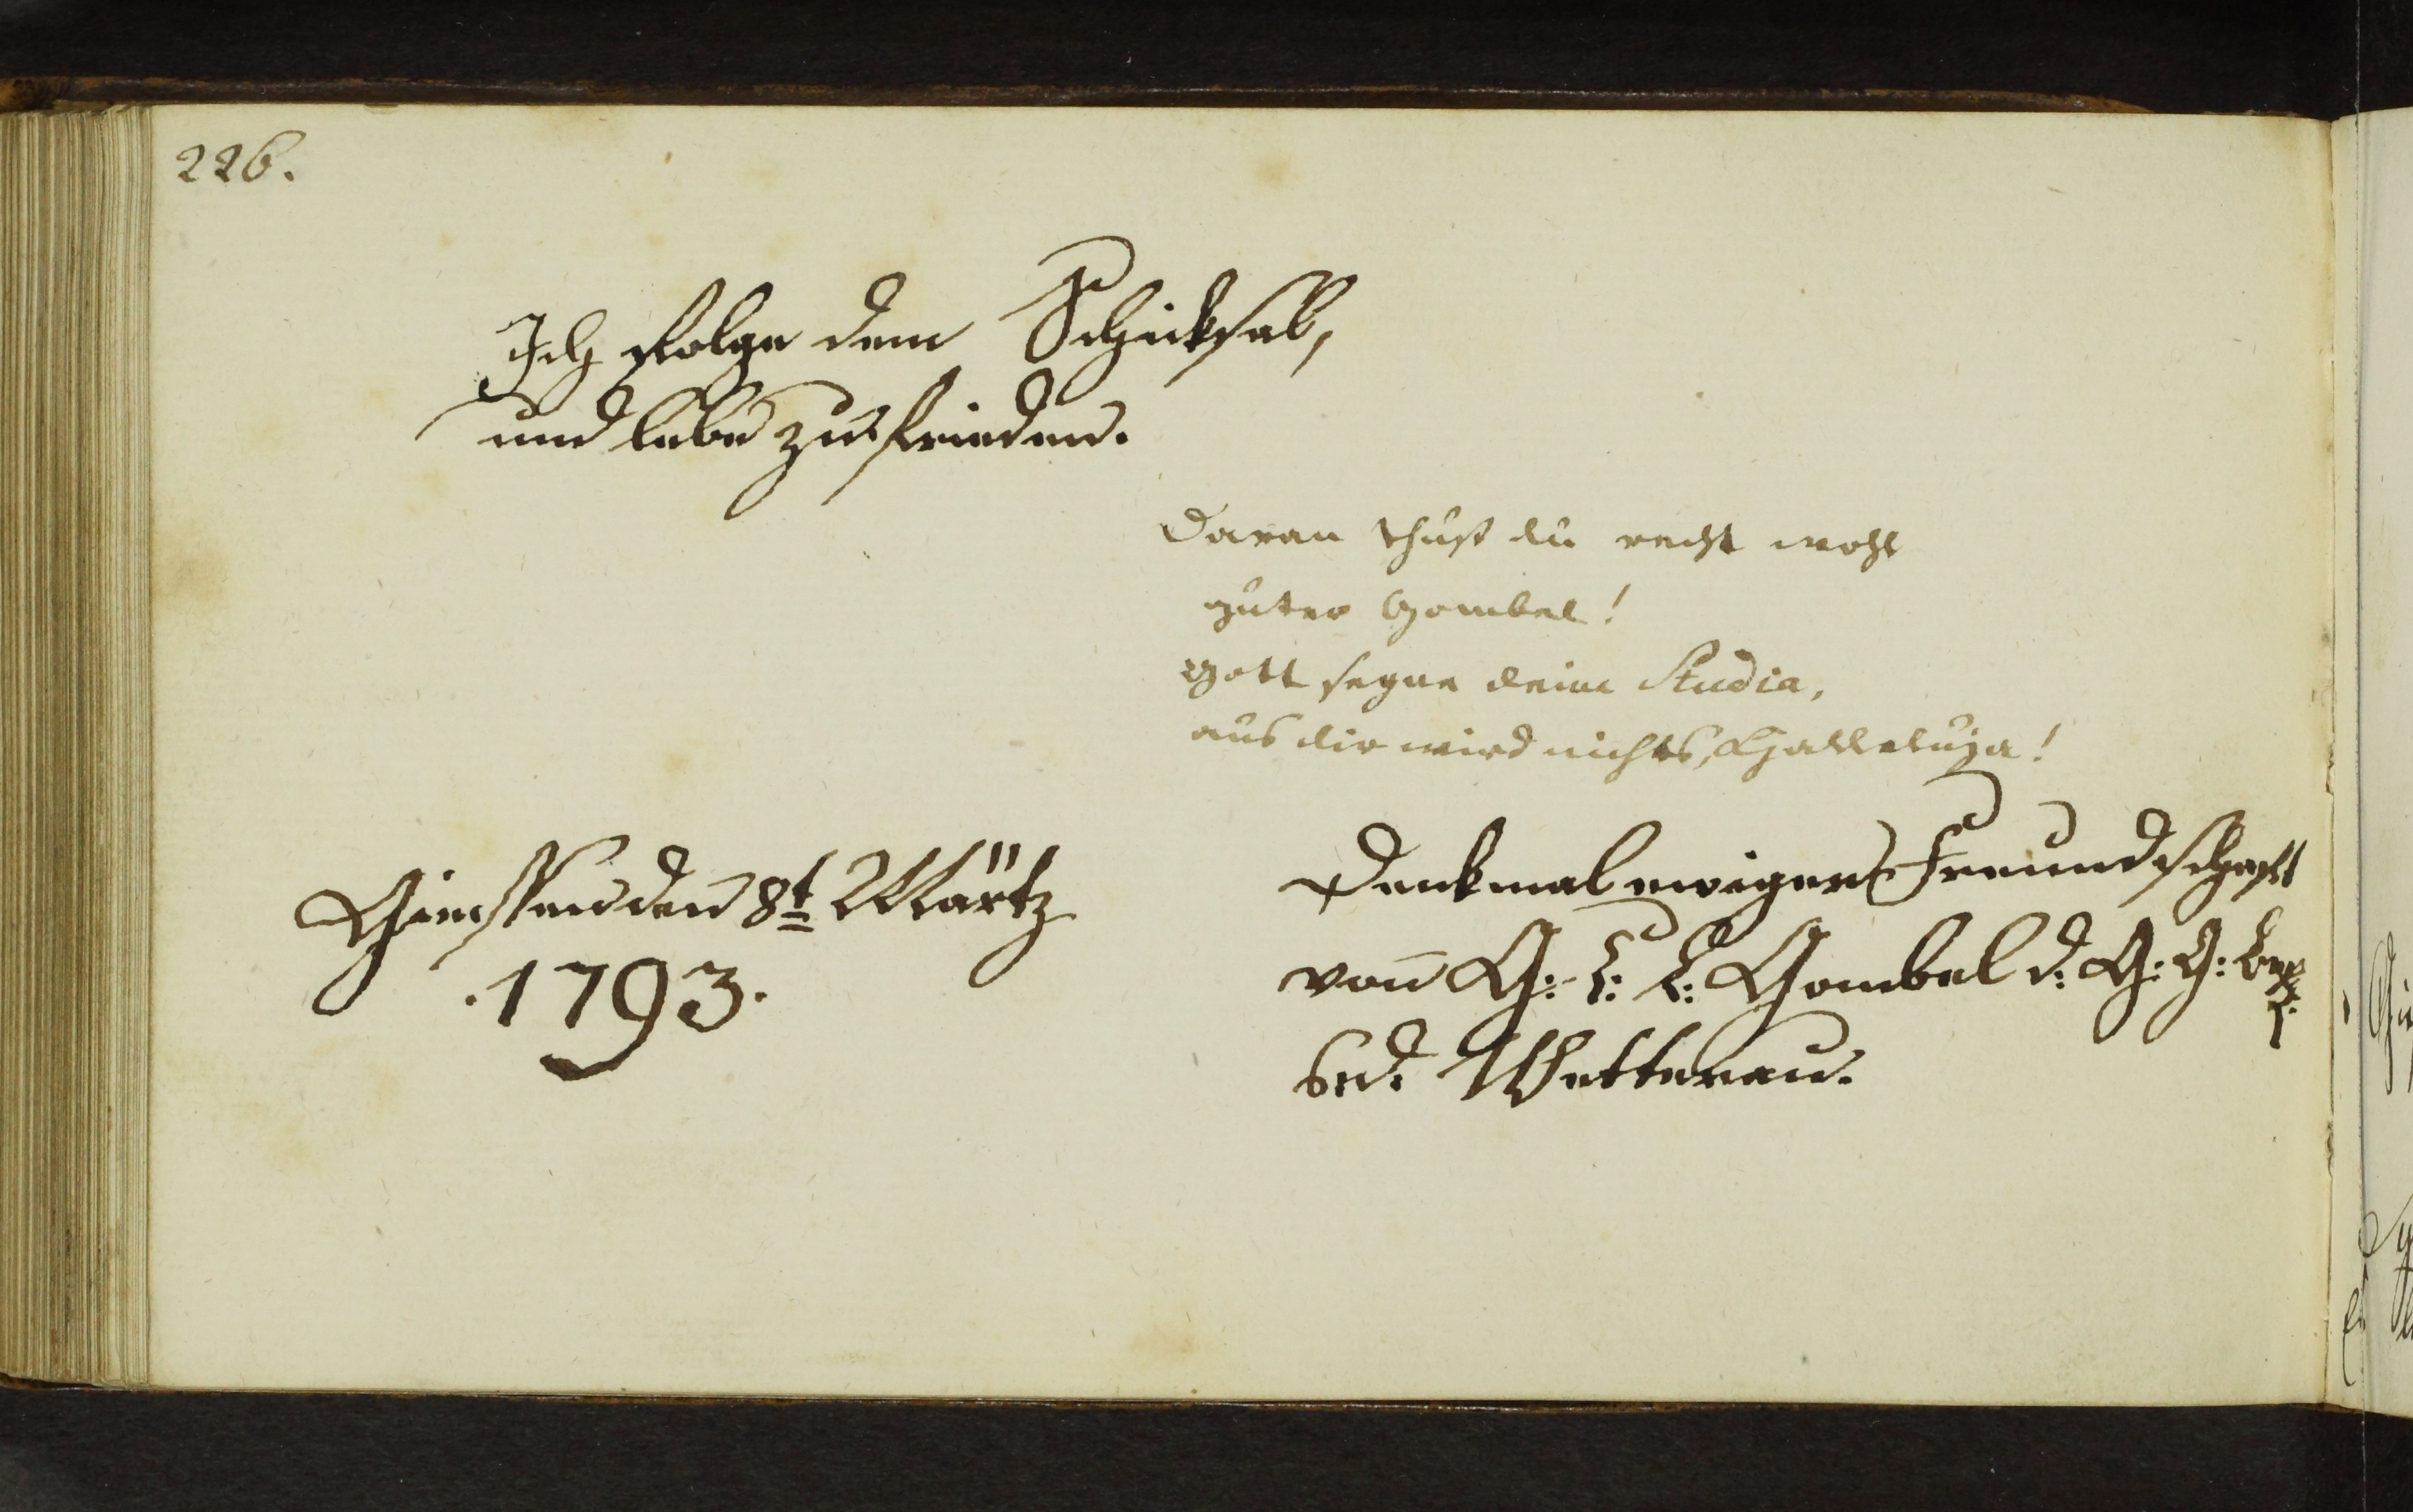 226.
Ich folge dem Schicksal,
und lebe zufrieden.
Daran thust du recht wohl
guter Gombel!
Gott segne deine Studia,
aus dir wird nichts, Halleluja!
Giessen den 8t März
.1793.
Denkmal ewiger Freundschaft
von G: L: L: Gombel d: G: G:
Wetterau.